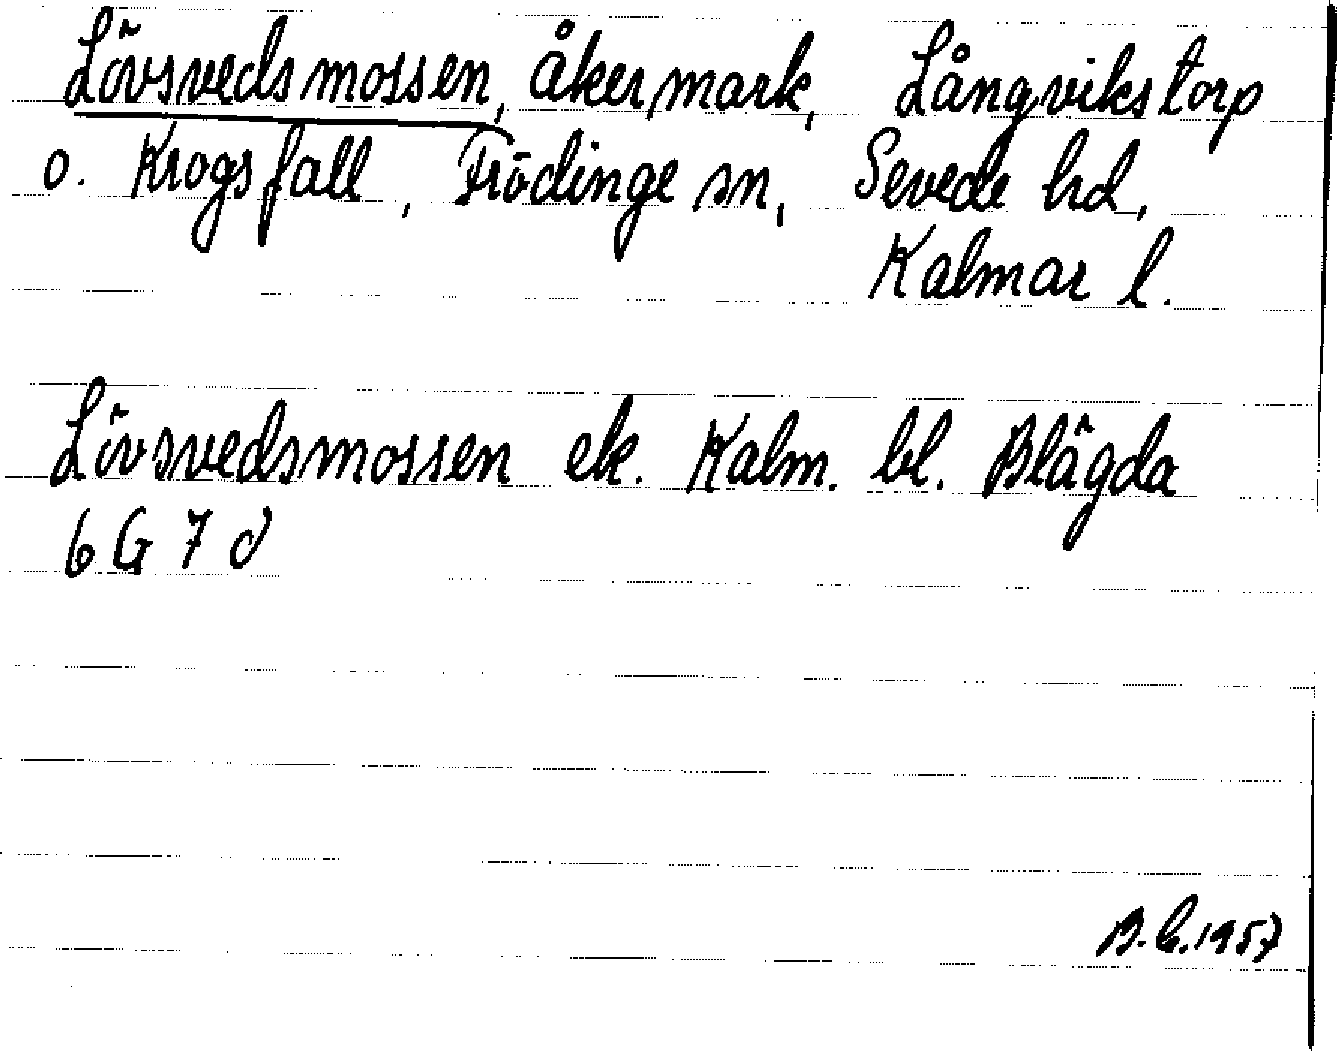 Lövsvedsmossen, åkermark, Långvikstorp
o. Krogsfall, Frödinge sn, Sevede hd,
Kalmar l.
Lövsvedsmossen ek. Kalm. bl. Blägda
6 G 7 d
1957